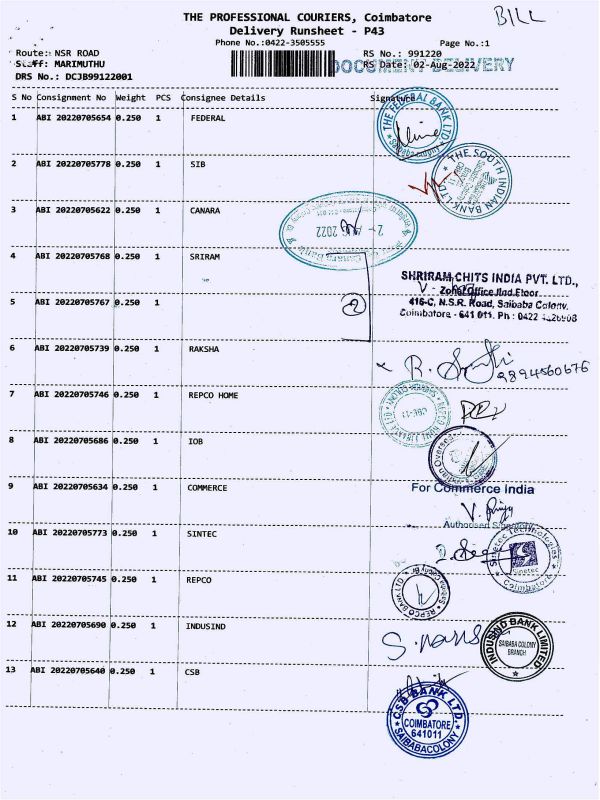 THE PROFESSIONAL COURIERS, Coimbatore
BILL
Delivery Runsheet - P43
Phone No.:0422-3505555
Page No.:1
Route: NSR ROAD
RS No.: 991220
Staff: MARIMUTHU
RS Date: 02-Aug-2022
DOCUMENT DELIVERY
DRS No.: DCJB99122001
S No Consignment No Weight PCS Consignee Details Signature
1 ABI 20220705654 0.250 1 FEDERAL
THE FEDERAL BANK LTD
2 ABI 20220705778 0.250 1 SIB
THE SOUTH INDIAN BANK LTD.
3 ABI 20220705622 0.250 1 CANARA
2022
Canara Bank
4 ABI 20220705768 0.250 1 SRIRAM
SHRIRAM CHITS INDIA PVT. LTD.,
Zonal Office IInd Floor
5 ABI 20220705767 0.250 1
2
416-C, N.S.R. Road, Saibaba Colony.
Coimbatore - 641 011. Ph : 0422
6 ABI 20220705739 0.250 1 RAKSHA
9894560676
7 ABI 20220705746 0.250 1 REPCO HOME
8 ABI 20220705686 0.250 1 IOB
Indian Overseas
9 ABI 20220705634 0.250 1 COMMERCE
For Commerce India
Authorised
10 ABI 20220705773 0.250 1 SINTEC
Sinetec Technologies
Sinetec
Coimbatore
11 ABI 20220705745 0.250 1 REPCO
REPCO BANK LTD
12 ABI 20220705690 0.250 1 INDUSIND
INDUSIND BANK LIMITED
SAIBABA COLONY
BRANCH
13 ABI 20220705640 0.250 1 CSB
CSB BANK LTD.
COIMBATORE
641011
SAIBABACOLONY